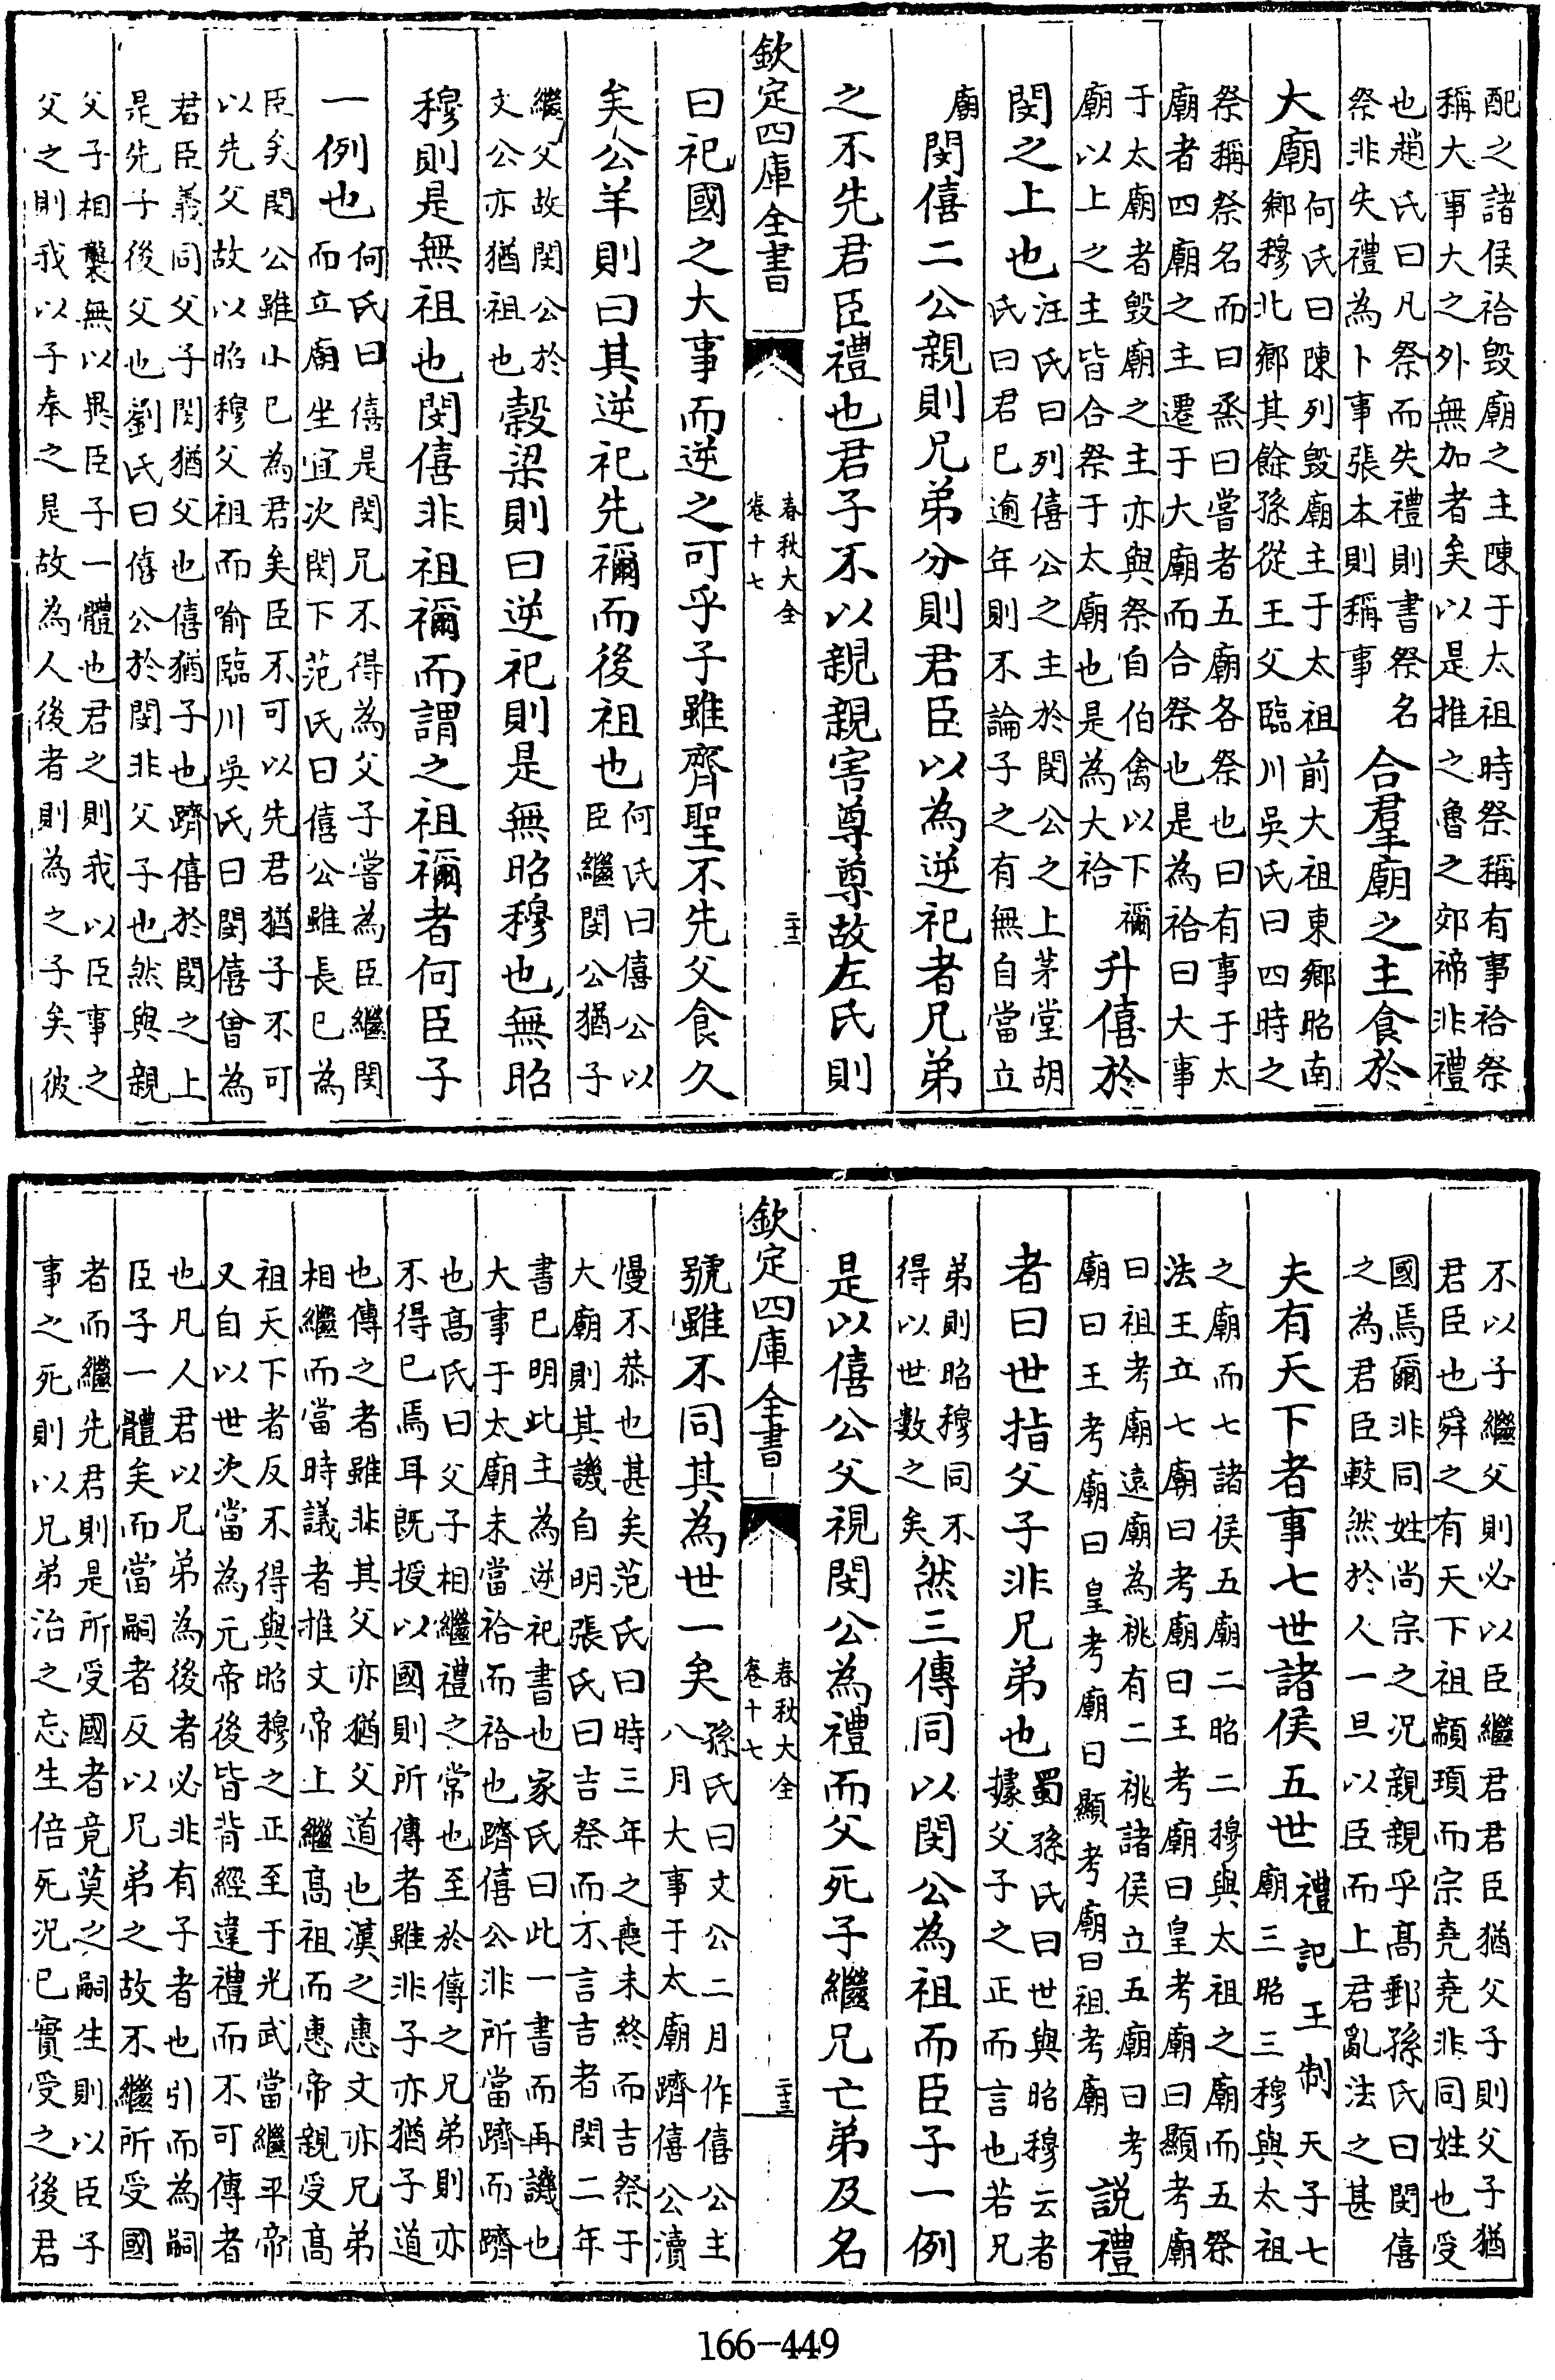 配之諸侯祫毀廟之主陳于太祖時祭稱有事祫祭
稱大事大之外無加者矣以是推之魯之郊禘非禮
也趙氏曰凡祭而失禮則書祭名
祭非失禮為卜事張本則稱事
合羣廟之主食於
大廟
何氏曰陳列毀廟主于太祖前大祖東鄉昭南
鄉穆北鄉其餘孫從王父臨川吳氏曰四時之
祭稱祭名而曰烝曰嘗者五廟各祭也曰有事于太
廟者四廟之主遷于大廟而合祭也是為祫曰大事
于太廟者毀廟之主亦與祭自伯禽以下禰
廟以上之主皆合祭于太廟也是為大祫
升僖於
閔之上也
汪氏曰列僖公之主於閔公之上茅堂胡
氏曰君巳逾年則不論子之有無自當立
廟
閔僖二公親則兄弟分則君臣以為逆祀者兄弟
之不先君臣禮也君子不以親親害尊尊故左氏則
欽定四庫全書
春秋大全
卷十七
二十二
曰祀國之大事而逆之可乎子雖齊聖不先父食久
矣公羊則曰其逆祀先禰而後祖也
何氏曰僖公以
臣繼閔公猶子
繼父故閔公於
文公亦猶祖也
穀梁則曰逆祀則是無昭穆也無昭
穆則是無祖也閔僖非祖禰而謂之祖禰者何臣子
一例也
何氏曰僖是閔兄不得為父子嘗為臣繼閔
而立廟坐宜次閔下范氏曰僖公雖長巳為
臣矣閔公雖小巳為君矣臣不可以先君猶子不可
以先父故以昭穆父祖而喻臨川吳氏曰閔僖曾為
君臣義同父子閔猶父也僖猶子也躋僖於閔之上
是先子後父也劉氏曰僖公於閔非父子也然與親
父子相襲無以異臣子一體也君之則我以臣事之
父之則我以子奉之是故為人後者則為之子矣彼
不以子繼父則必以臣繼君君臣猶父子則父子猶
君臣也舜之有天下祖顓頊而宗堯堯非同姓也受
國焉爾非同姓尚宗之況親親乎高郵孫氏曰閔僖
之為君臣較然於人一旦以臣而上君亂法之甚
夫有天下者事七世諸侯五世
禮記王制天子七
廟三昭三穆與太祖
之廟而七諸侯五廟二昭二穆與太祖之廟而五祭
法王立七廟曰考廟曰王考廟曰皇考廟曰顯考廟
曰祖考廟遠廟為祧有二祧諸侯立五廟曰考
廟曰王考廟曰皇考廟曰顯考廟曰祖考廟
説禮
者曰世指父子非兄弟也
蜀孫氏曰世與昭穆云者
據父子之正而言也若兄
弟則昭穆同不
得以世數之矣
然三傳同以閔公為祖而臣子一例
是以僖公父視閔公為禮而父死子繼兄亡弟及名
欽定四庫全書
春秋大全
卷十七
二十三
號雖不同其為世一矣
孫氏曰文公二月作僖公主
八月大事于太廟躋僖公瀆
慢不恭也甚矣范氏曰時三年之喪未終而吉祭于
大廟則其譏自明張氏曰吉祭而不言吉者閔二年
書巳明此主為逆祀書也家氏曰此一書而再譏也
大事于太廟未當祫而祫也躋僖公非所當躋而躋
也高氏曰父子相繼禮之常也至於傳之兄弟則亦
不得已焉耳既授以國則所傳者雖非子亦猶子道
也傳之者雖非其父亦猶父道也漢之惠文亦兄弟
相繼而當時議者推文帝上繼高祖而惠帝親受高
祖天下者反不得與昭穆之正至于光武當繼平帝
又自以世次當為元帝後皆背經違禮而不可傳者
也凡人君以兄弟為後者必非有子者也引而為嗣
臣子一體矣而當嗣者反以兄弟之故不繼所受國
者而繼先君則是所受國者竟莫之嗣生則以臣子
事之死則以兄弟治之忘生倍死況已實受之後君
166-449